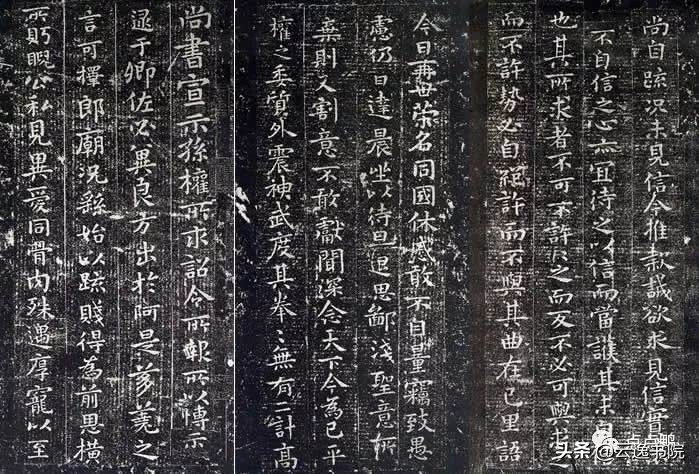 尚書宣示孫權所求詔令所報所以博示
逮于卿佐必冀良方出於阿是芻蕘之
言可擇郎廟況繇始以疏賤得為前恩橫
所眤公私見異愛同骨肉殊遇厚寵以至
今日再世榮名同國休慼敢不自量竊致愚
慮仍日達晨坐以待旦退思鄙淺聖意所
棄則又割意不敢獻聞深念天下今為已平
權之委質外震神武度其拳〻無有二計高
尚自疏況未見信今推款誠欲求見信實
不自信之心亦宜待之以信而當護其未自
也其所求者不可不許許之而反不必可與求之
而不許勢必自絕許而不與其曲在己里語
头条@云逸书院